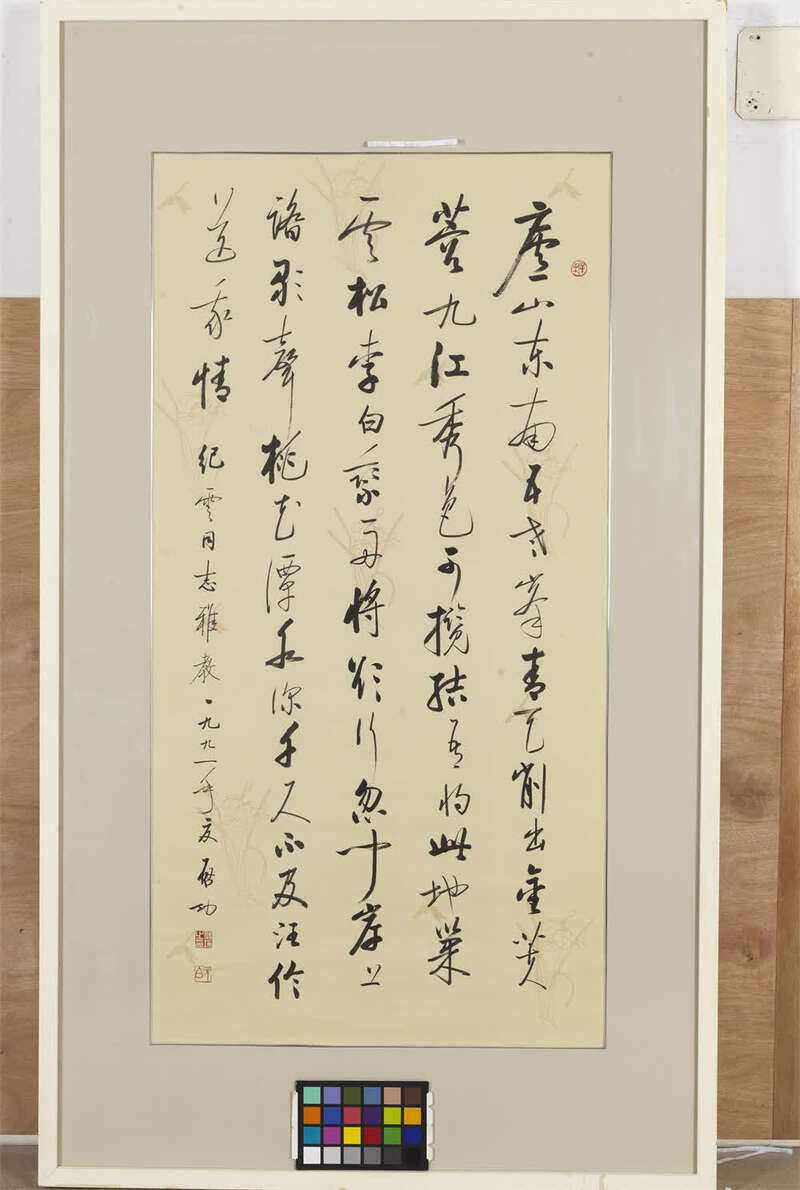 廬山东南五老峯青天削出金芙
蓉九江秀色可攬结吾将此地巢
雲松李白乘舟將欲行忽闻岸上
踏歌聲桃花潭水深千尺不及汪伦
送我情 纪雲同志雅教 一九九一年夏 启功